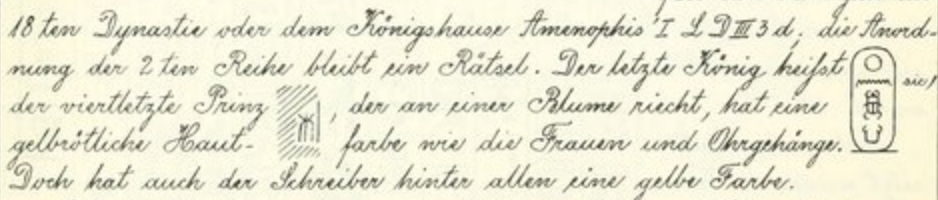 18ten Dynastie oder dem Königshause Amenophis' I L D III 3 d, die Anord-
nung der 2ten Reihe bleibt ein Rätsel. Der letzte König heißt sic!
der viertletzte Prinz , der an einer Blume riecht, hat eine
gelbrötliche Haut- farbe wie die Frauen und Ohrgehänge.
Doch hat auch der Schreiber hinter allen eine gelbe Farbe.